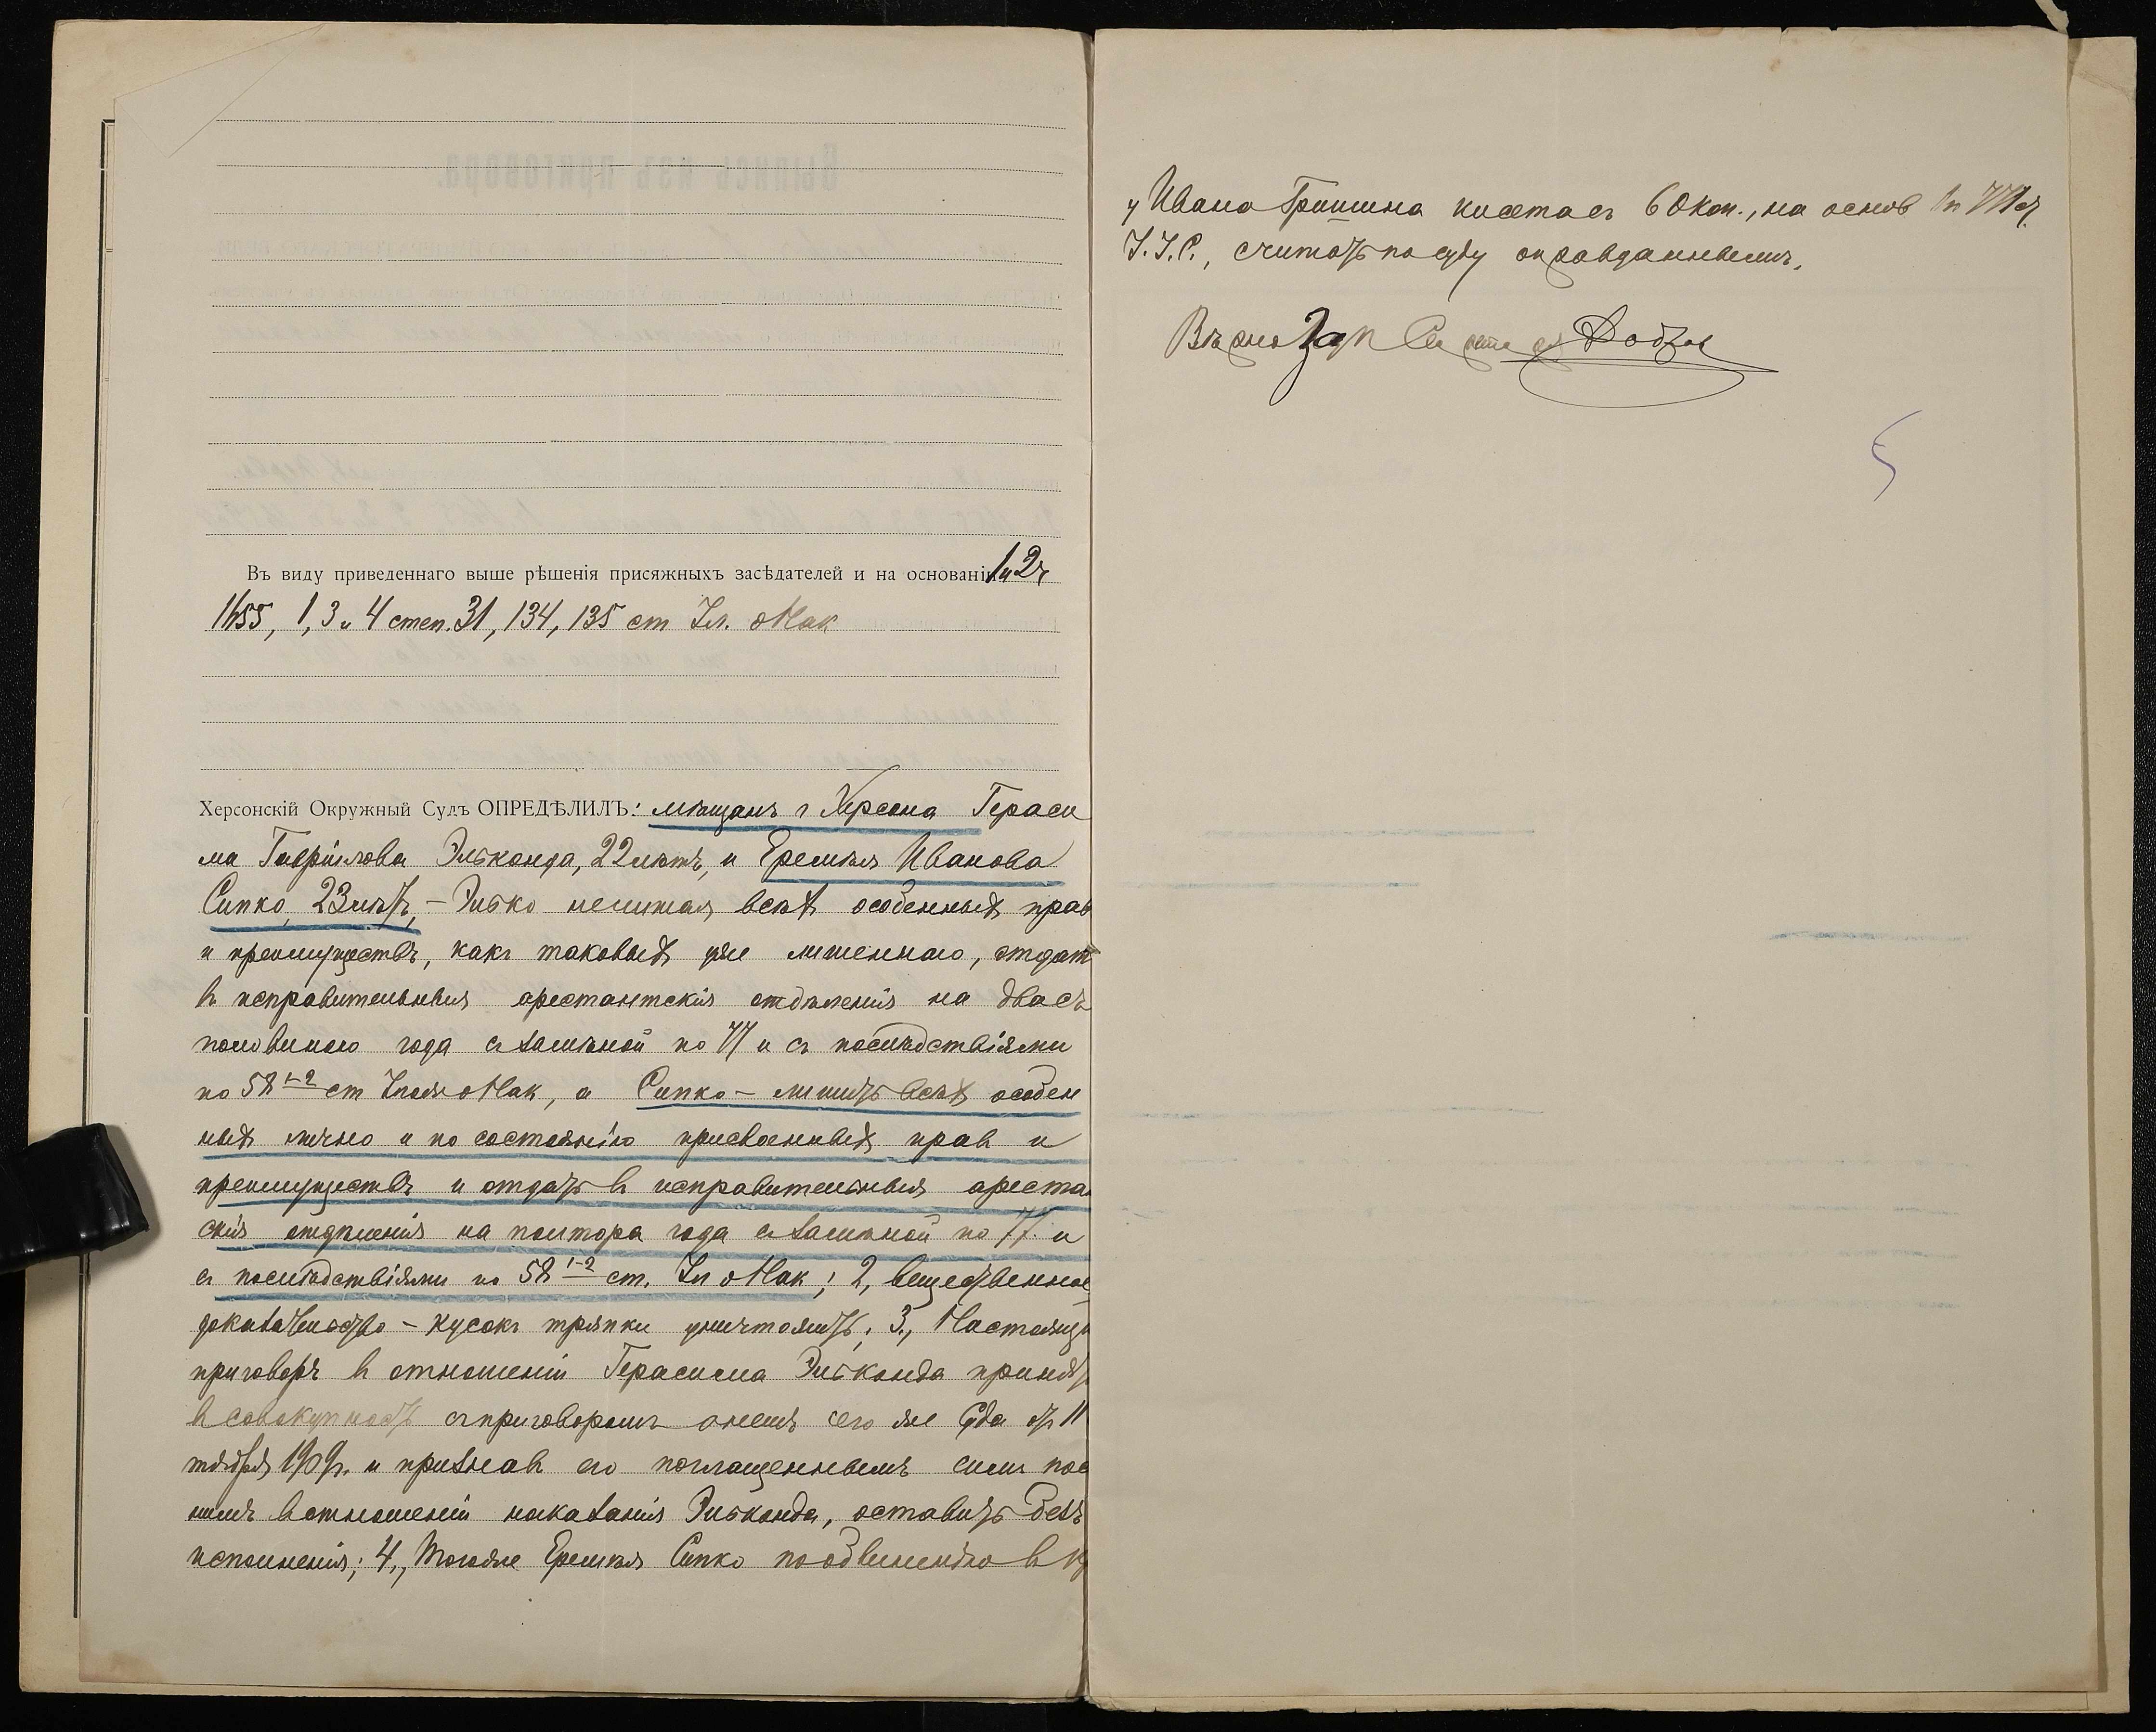 Въ виду приведеннаго выше рѣшенія присяжныхъ засѣдателей и на основаніи 1 и 2 ч
1655, 1, 3 и 4 степ. 31, 134, 135 ст Ул. о Нак
Херсонскій Окружный Судъ ОПРЕДѢЛИЛЪ: мѣщанъ г Херсона Гераси
ма Гаврилова Элько­нда, 22 лѣтъ, и Еремѣя Иванова
Сипко, 23 лѣтъ, – не лишая всѣхъ особенныхъ прав
и преимуществъ, какъ таковыхъ уже лишеннаго, отдат
въ исправительныя арестантскія отдѣленія на два съ
половиною года съ замѣной по 77 и съ послѣдствіями
по 58 1–2 ст Улож о Нак, а Сипко – лишить всѣхъ особен
ныхъ лично и по состоянію присвоенныхъ правъ и
преимуществъ и отдать въ исправительныя ареста
скія отдѣленія на полтора года съ замѣной по 77. и
съ послѣдствіями по 58 1–2 ст. Ул о Нак; 2, вещественное
доказательство – кусокъ тряпки уничтожить; 3., Настоящи
приговоръ въ отношеніи Герасима Эльконда принять
въ совокупность съ приговоромъ о немъ сего же Суда отъ 11
тября 1909 г. и признавъ его поглащеннымъ симъ пос
нимъ въ отношеніи наказанія Эльконда, оставить безъ
исполненія; 4., Того же Еремѣя Сипко по обвиненію въ
у Ивана Гришина кисета съ 60 коп., на основ 1 п 771 ст.
У.У.С., считать по суду оправданнымъ.
Вѣрно За